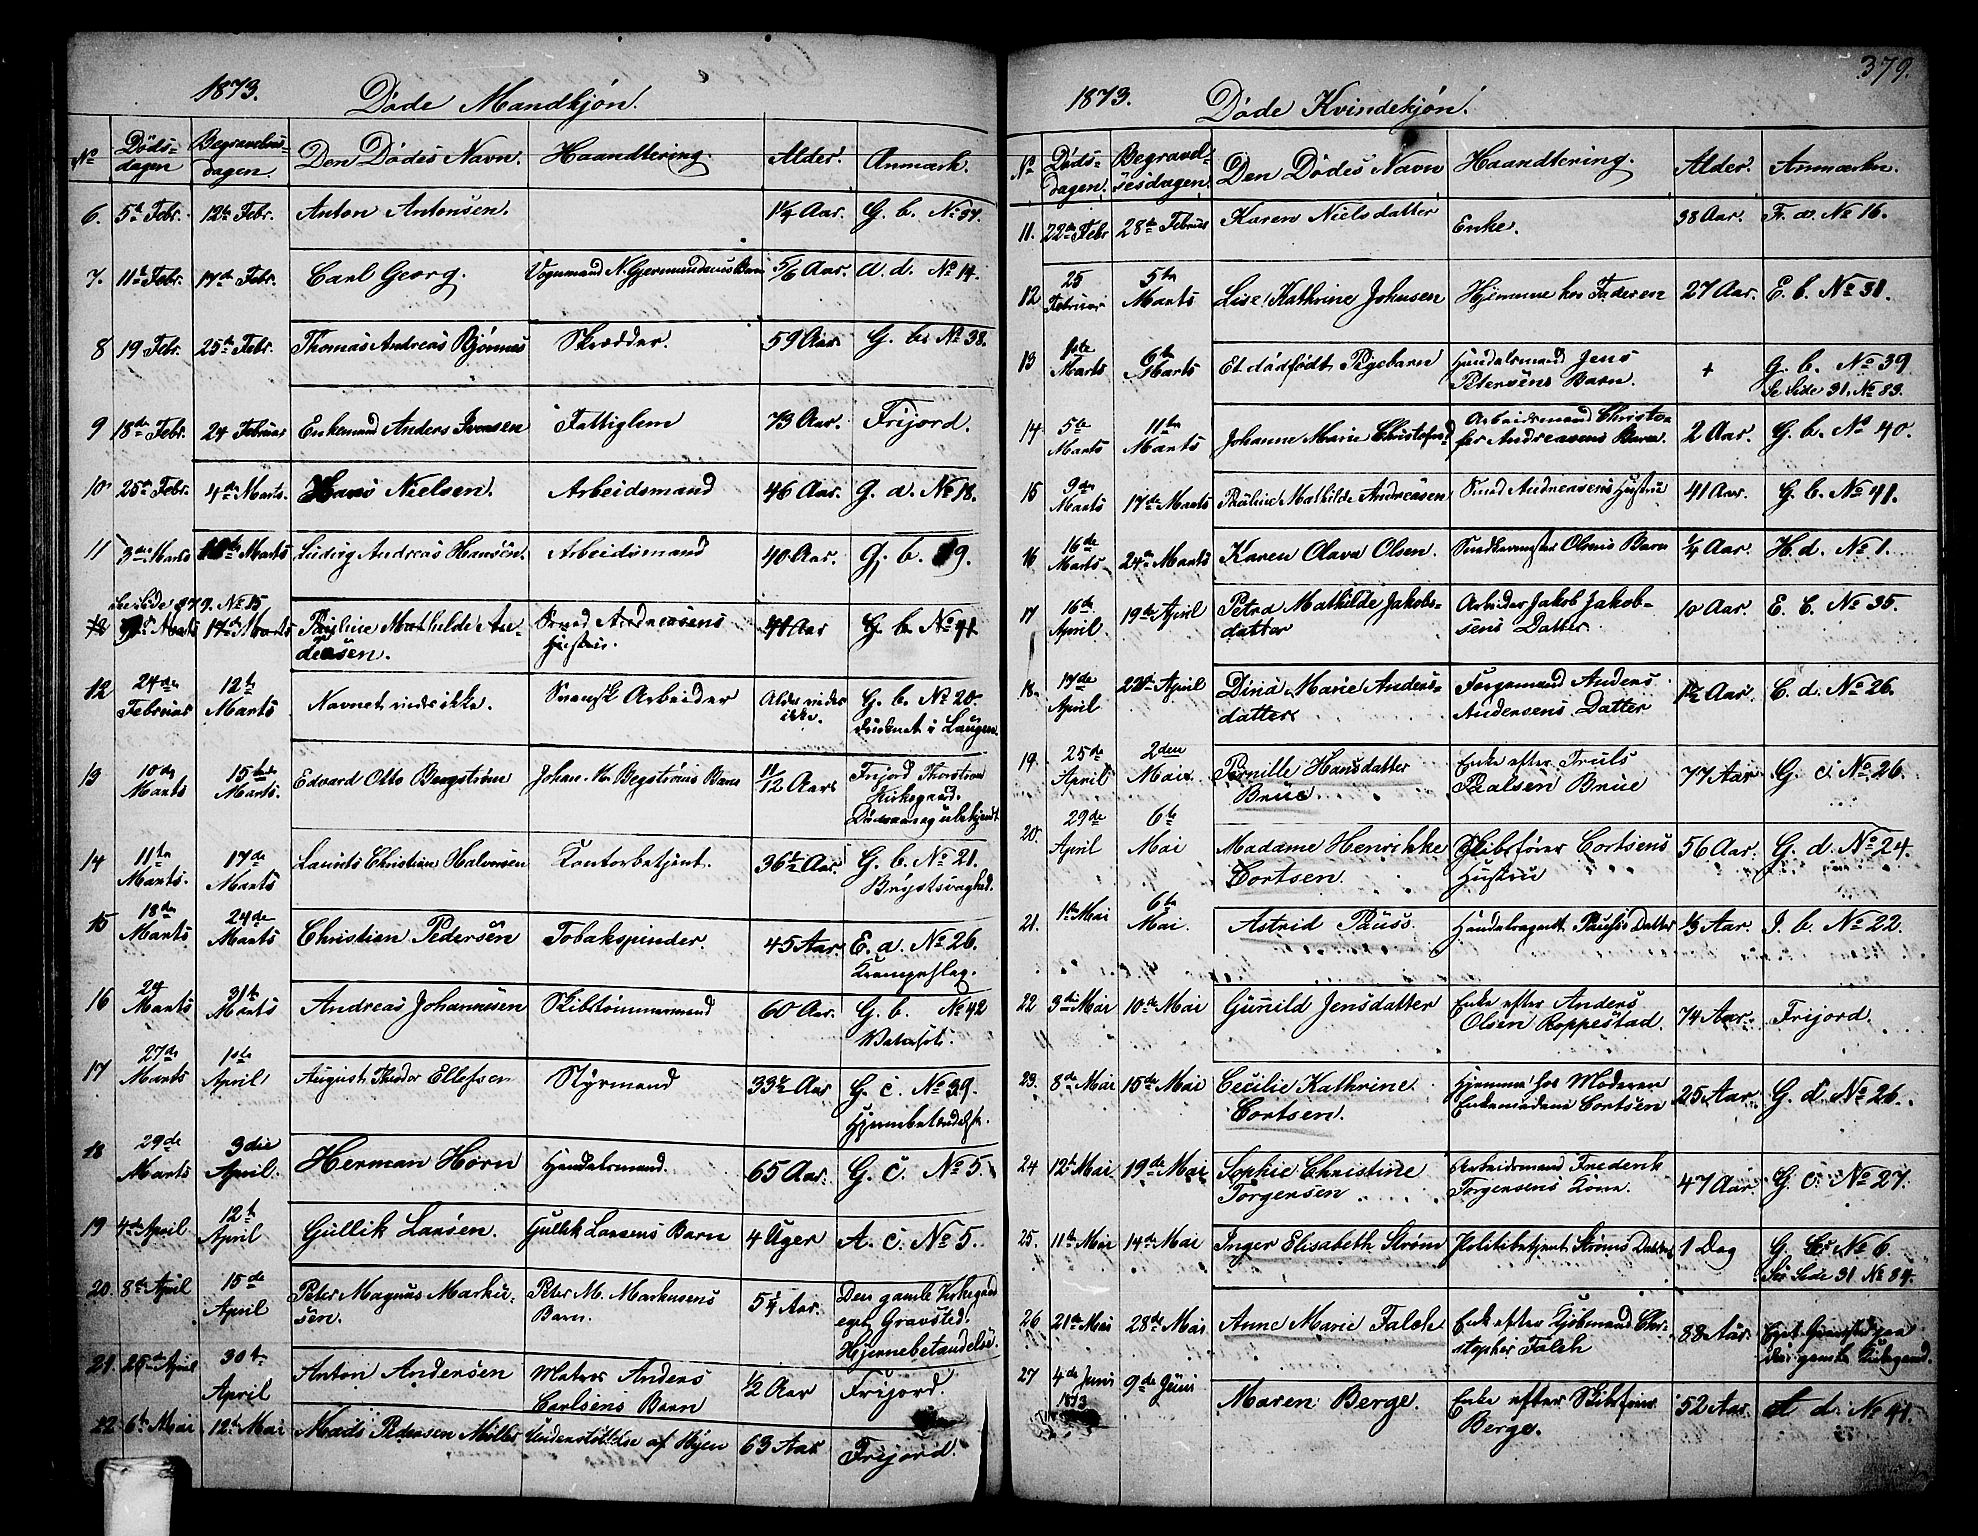 1873. Døde Mandkjøn.
No Dødsdagen Begravelsesdagen. Den Dødes Navn. Haandtering. Alder. Anmærk.
6. 5te Febr. 12te Febr. Anton Antonsen. 1 1/4 Aar. G. b. No 37.
7. 11te Febr. 17de Febr. Carl Georg. Vognmand N. Gjermundsens Barn 5/6 Aar. a. d. No 14.
8 19 Febr. 25de Febr. Thomas Andreas Bjønnes Skrædder. 59 Aar G. b. No 38.
9 18de Febr. 24 Februar Enkemand Anders Iversen Fattiglem 73 Aar. Frijord.
10 25de Febr. 4de Marts. Hans Nielsen. Arbeidsmand 46 Aar. G. a. No 18.
11 3die Marts Marts Ludvig Andreas Hansen. Arbeidsmand 40 Aar. G. b. 19.
See Side 379. No 15
12 9de Marts 17de Marts Pauline Mathilde An-
dreasen. Smed Andreasens Hustru. 41 Aar G. b. No 41.
12 24de Februar 12te Marts Navnet vides ikke. Svensk Arbeider Alder vides ikke. G. b. No 20.
druknet i Laugen.
13 10de Marts 15de Marts. Edvard Otto Bergstrøm Johan K. Begstrøms Barn 11/12 Aar Frijord Thorstrøm
Kirkegaard.
Dødsaarsag ubekjendt
14 11te Marts. 17de Marts Laurits Christian Halvorsen Kontorbetjent. 36 1/2 Aar. G. b. No 21.
Brystsvaghed.
15 18de Marts 24de Marts Christian Pedersen Tobakspinder. 45 Aar. E. a. No 26.
Krampeslag.
16 24 Marts 31te Marts Andreas Johannesen Skibtømmermand 60 Aar. G. b. No 42
Vatersot.
17 27de Marts 1ste April August Theodor Ellefsen Styrmand 33 1/2 Aar G. c. No 39.
Hjernebetændelse.
18 29de Marts 3die April. Herman Horn Handelsmand. 65 Aar. G. c. No 5
19 4de April 12te April Gullik Larsen. Gullik Larsens Barn 4 Uger A. c. No 5.
20. 8de April 15de April Peter Magnus Marku-
sen. Peter M. Markusens Barn. 5 1/4 Aar. Den gamle Kirkegaard
eget Gravsted.
Hjernebetændelse.
21. 25de April 30te April Anton Andersen Matros Anders
Carlsens Barn 1/2 Aar Frijord.
22 6te Mai 12te Mai Mads Pedersen Møller Understøttelse af Byen 63 Aar Frijord.
379.
1873. Døde Kvindekjøn.
No Dødsdagen. Begravelsesdagen. Den Dødes Navn Haandtering. Alder. Anmærkn.
11. 22de Febr 28de Februar Karen Nielsdatter Enke. 38 Aar. F. a. No 16.
12 25 Februar 5te Marts Lise Kathrine Johnsen Hjemme hos Faderen 27 Aar. E. b. No 31.
13 1ste Marts 6te Marts Et dødfødt Pigebarn Handelsmand Jens
Petersens Barn. + G. b. No 39
Se Side 31. No 83.
14 5te Marts 11te Marts Johanne Marie Christofersd Arbeidsmand Christo-
fer Andreasens Barn. 2 Aar. G. b. No 40.
15 9de Marts 17de Marts Pauline Mathilde Andreasen Smed Andreasens Hustru 41 Aar. G. b. No 41.
16 16de Marts 24de Marts Karen Olava Olsen. Olsens Barn 1/4 Aar. H. d. No 1.
17 16de April 19de April Petra Mathilde Jakobs-
datter Arbeider Jakob Jakob-
sens Datter 10 Aar. E. C. No 35.
18. 17de April 22de April Dina Marie Anders-
datter Anders
Andersens Datter 1 1/2 Aar. C. d. No 26.
19. 25de April 2den Mai Pernille Hansdatter
Brue Enke efter Truls
Paalsen Brue 77 Aar G. c. No 26.
20. 29de April 6te Mai Madame Henrikke
Cortsen Skibsfører Cortsens
Hustru 56 Aar. G. d. No 24.
21. 1ste Mai 6te Mai. Astrid Pauss. Handelsagent Pauss's Datter 1/3 Aar. I. b. No 22.
22. 3die Mai 10de Mai Gunild Jensdatter Enke efter Anders
Olsen Roppestad. 74 Aar. Frijord.
23. 8de Mai 15de Mai Cecilie Kathrine
Cortsen. Hjemme hos Moderen
Enkemadame Cortsen 25 Aar. G. d. No 26.
24 12te Mai 19de Mai Sophie Christine
Jørgensen Arbeidsmand Frederik
Jørgensens Kone. 47 Aar. G. c. No 27.
25. 11te Mai 14de Mai Inger Elisabeth Strøm Politibetjent Strøms Datter 1 Dag G. No 6.
See Side 31 No 84.
26 21de Mai 28de Mai Anne Marie Falch Enke efter Kjøbmand Chri-
stopher Falch 88 Aar. Eget Gravsted paa
den gamle Kirkegaard.
27 4de Juni
1873 9de Juni Maren Berge. Enke efter Skibsfører
Berge. 52 Aar. A d. No 41.